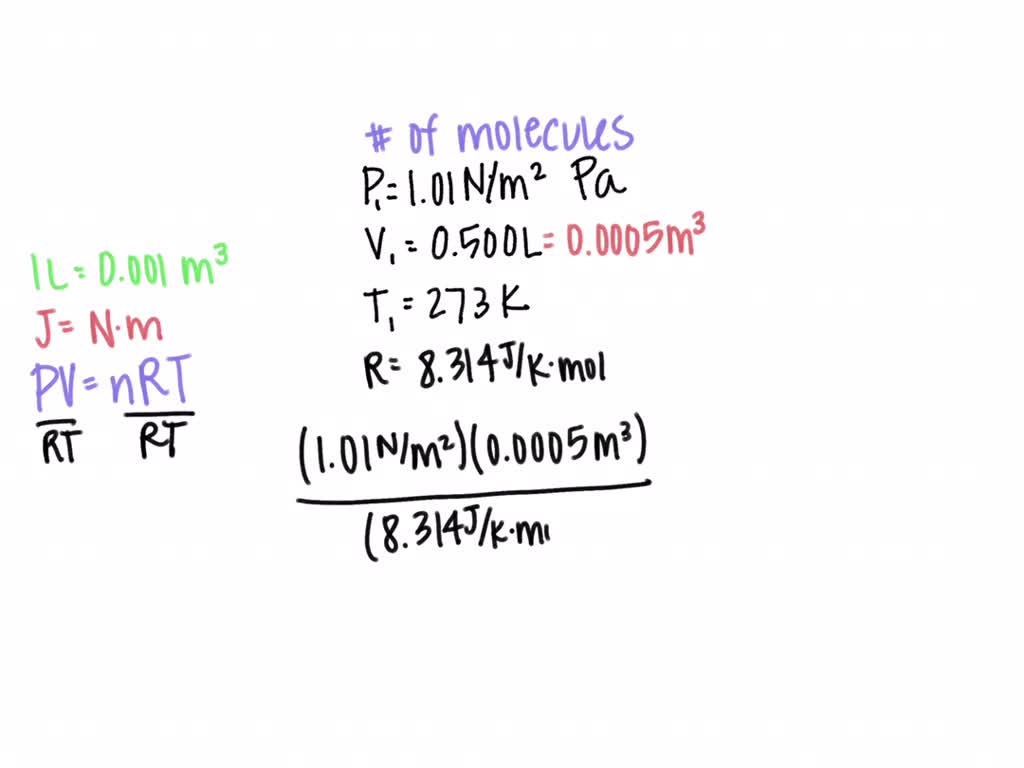 # of molecules
P₁ = 1.01 N/m² Pa
V₁ = 0.500L = 0.0005m³
T₁ = 273 K
R = 8.314 J/K·mol
1L = 0.001 m³
J = N·m
PV = nRT
RT RT
(1.01 N/m²)(0.0005m³)
(8.314 J/K·m